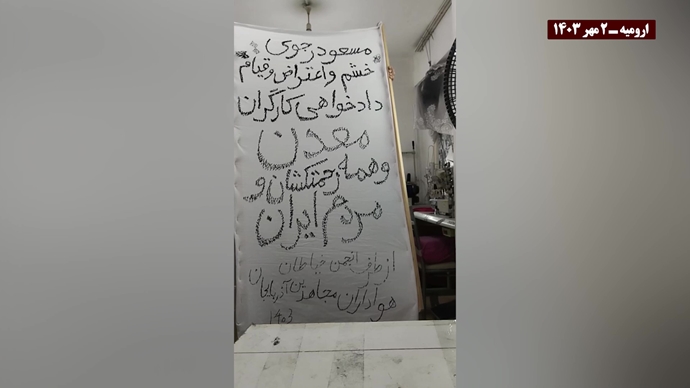 ارومیه ــ ۲ مهر ۱۴۰۳
مسعود رجوی
خشم و اعتراض و قیام
دادخواهی کارگران
معدن
و همه زحمتکشان و
مردم ایران
از طرف انجمن خیاطان
هواداران مجاهدین آذربایجان
۱۴۰۳